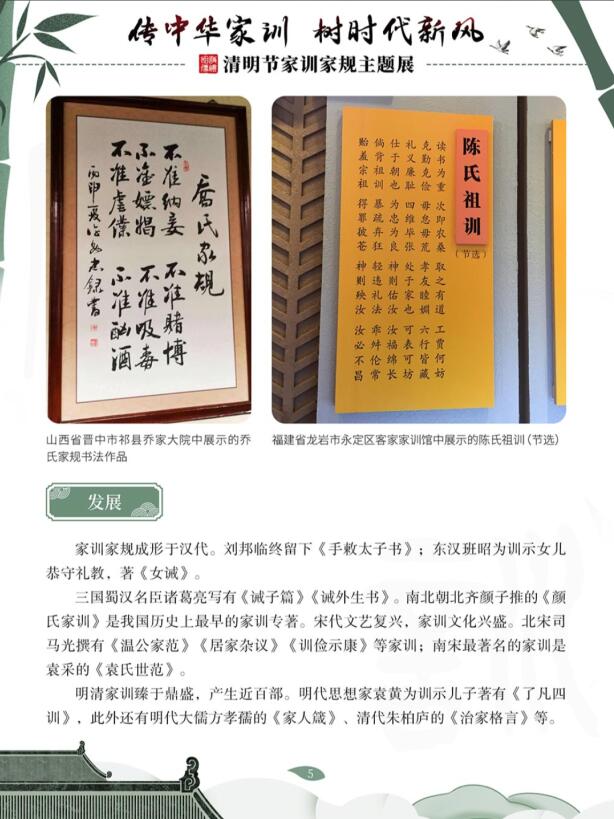 传中华家训 树时代新风
清明节家训家规主题展
喬氏家規
不准纳妾 不准赌博
不准嫖娼 不准吸毒
不准虐僕 不准酗酒
陈氏祖训
（节选）
读书为重 次即农桑 取之有道 工贾何妨
克勤克俭 毋怠毋荒 孝友睦婣 六行皆藏
礼义廉耻 四维毕张 处于家也 可表可坊
仕于朝也 为忠为良 神则佑汝 汝福绵长
倘背祖训 暴疏弃狂 轻违礼法 乖舛伦常
贻羞宗祖 得罪彼苍 神则殃汝 汝必不昌
山西省晋中市祁县乔家大院中展示的乔
氏家规书法作品
福建省龙岩市永定区客家家训馆中展示的陈氏祖训（节选）
发展
家训家规成形于汉代。刘邦临终留下《手敕太子书》；东汉班昭为训示女儿
恭守礼教，著《女诫》。
三国蜀汉名臣诸葛亮写有《诫子篇》《诫外生书》。南北朝北齐颜子推的《颜
氏家训》是我国历史上最早的家训专著。宋代文艺复兴，家训文化兴盛。北宋司
马光撰有《温公家范》《居家杂议》《训俭示康》等家训；南宋最著名的家训是
袁采的《袁氏世范》。
明清家训臻于鼎盛，产生近百部。明代思想家袁黄为训示儿子著有《了凡四
训》，此外还有明代大儒方孝孺的《家人箴》、清代朱柏庐的《治家格言》等。
5